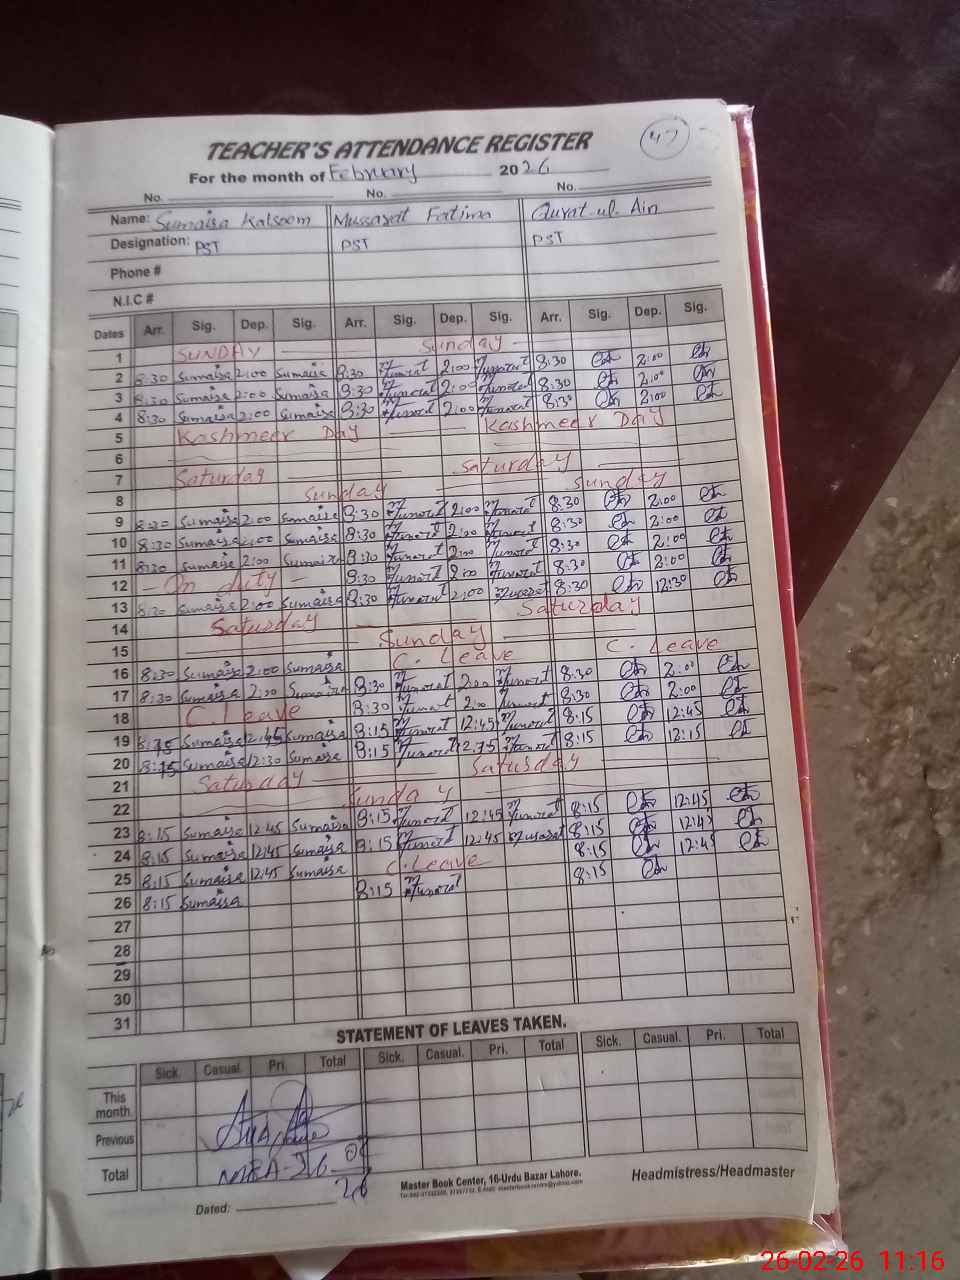 47
TEACHER'S ATTENDANCE REGISTER
For the month of February 2026
No. No. No.
Name: Sumaisa Kalsoom Mussarat Fatima Qurat-ul-Ain
Designation: PST PST PST
Phone #
N.I.C #
Dates Arr. Sig. Dep. Sig. Arr. Sig. Dep. Sig. Arr. Sig. Dep. Sig.
1 SUNDAY Sunday
2 8:30 Sumaisa 2:00 Sumaisa 8:30 2:00 8:30 2:00
3 8:30 Sumaisa 2:00 Sumaisa 8:30 2:00 8:30 2:00
4 8:30 Sumaisa 2:00 Sumaisa 8:30 2:00 8:30 2:00
5 Kashmeer Day Kashmeer Day
6
7 Saturday Saturday
8 Sunday Sunday
9 8:30 Sumaisa 2:00 Sumaisa 8:30 2:00 8:30 2:00
10 8:30 Sumaisa 2:00 Sumaisa 8:30 2:00 8:30 2:00
11 8:30 Sumaisa 2:00 Sumaisa 8:30 2:00 8:30 2:00
12 On duty 8:30 2:00 8:30 2:00
13 8:30 Sumaisa 2:00 Sumaisa 8:30 2:00 8:30 12:30
14 Saturday Saturday
15 Sunday
16 8:30 Sumaisa 2:00 Sumaisa C. Leave C. Leave
17 8:30 Sumaisa 2:00 Sumaisa 8:30 2:00 8:30 2:00
18 C. Leave 8:30 2:00 8:30 2:00
19 8:15 Sumaisa 12:45 Sumaisa 8:15 12:45 8:15 12:45
20 8:15 Sumaisa 12:30 Sumaisa 8:15 8:15 12:15
21 Saturday Saturday
22 Sunday
23 8:15 Sumaisa 12:45 Sumaisa 8:15 12:45 8:15 12:45
24 8:15 Sumaisa 12:45 Sumaisa 8:15 12:45 8:15 12:45
25 8:15 Sumaisa 12:45 Sumaisa C. Leave 8:15 12:45
26 8:15 Sumaisa 8:15 8:15
27
28
29
30
31
STATEMENT OF LEAVES TAKEN.
Sick. Casual. Pri. Total Sick. Casual. Pri. Total Sick. Casual. Pri. Total
This month.
Previous
Total
Master Book Center, 16-Urdu Bazar Lahore.
Headmistress/Headmaster
Dated:
26-02-26 11:16